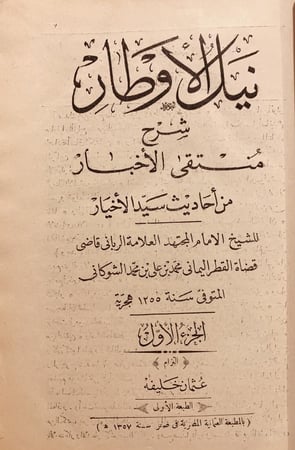 ٧
نيل الأوطار
شرح
منتقى الأخبار
من أحاديث سيد الأخيار
للشيخ الامام المجتهد العلامة الربانى قاضى
قضاة القطر اليمانى محمد بن على بن محمد الشوكانى
المتوفى سنة ١٢٥٥ هجرية
الجزء الأول
التزام
عثمان خليفه
الطبعة الأولى
(بالمطبعة العثمانية المصرية فى سنة ١٣٥٧ ه)